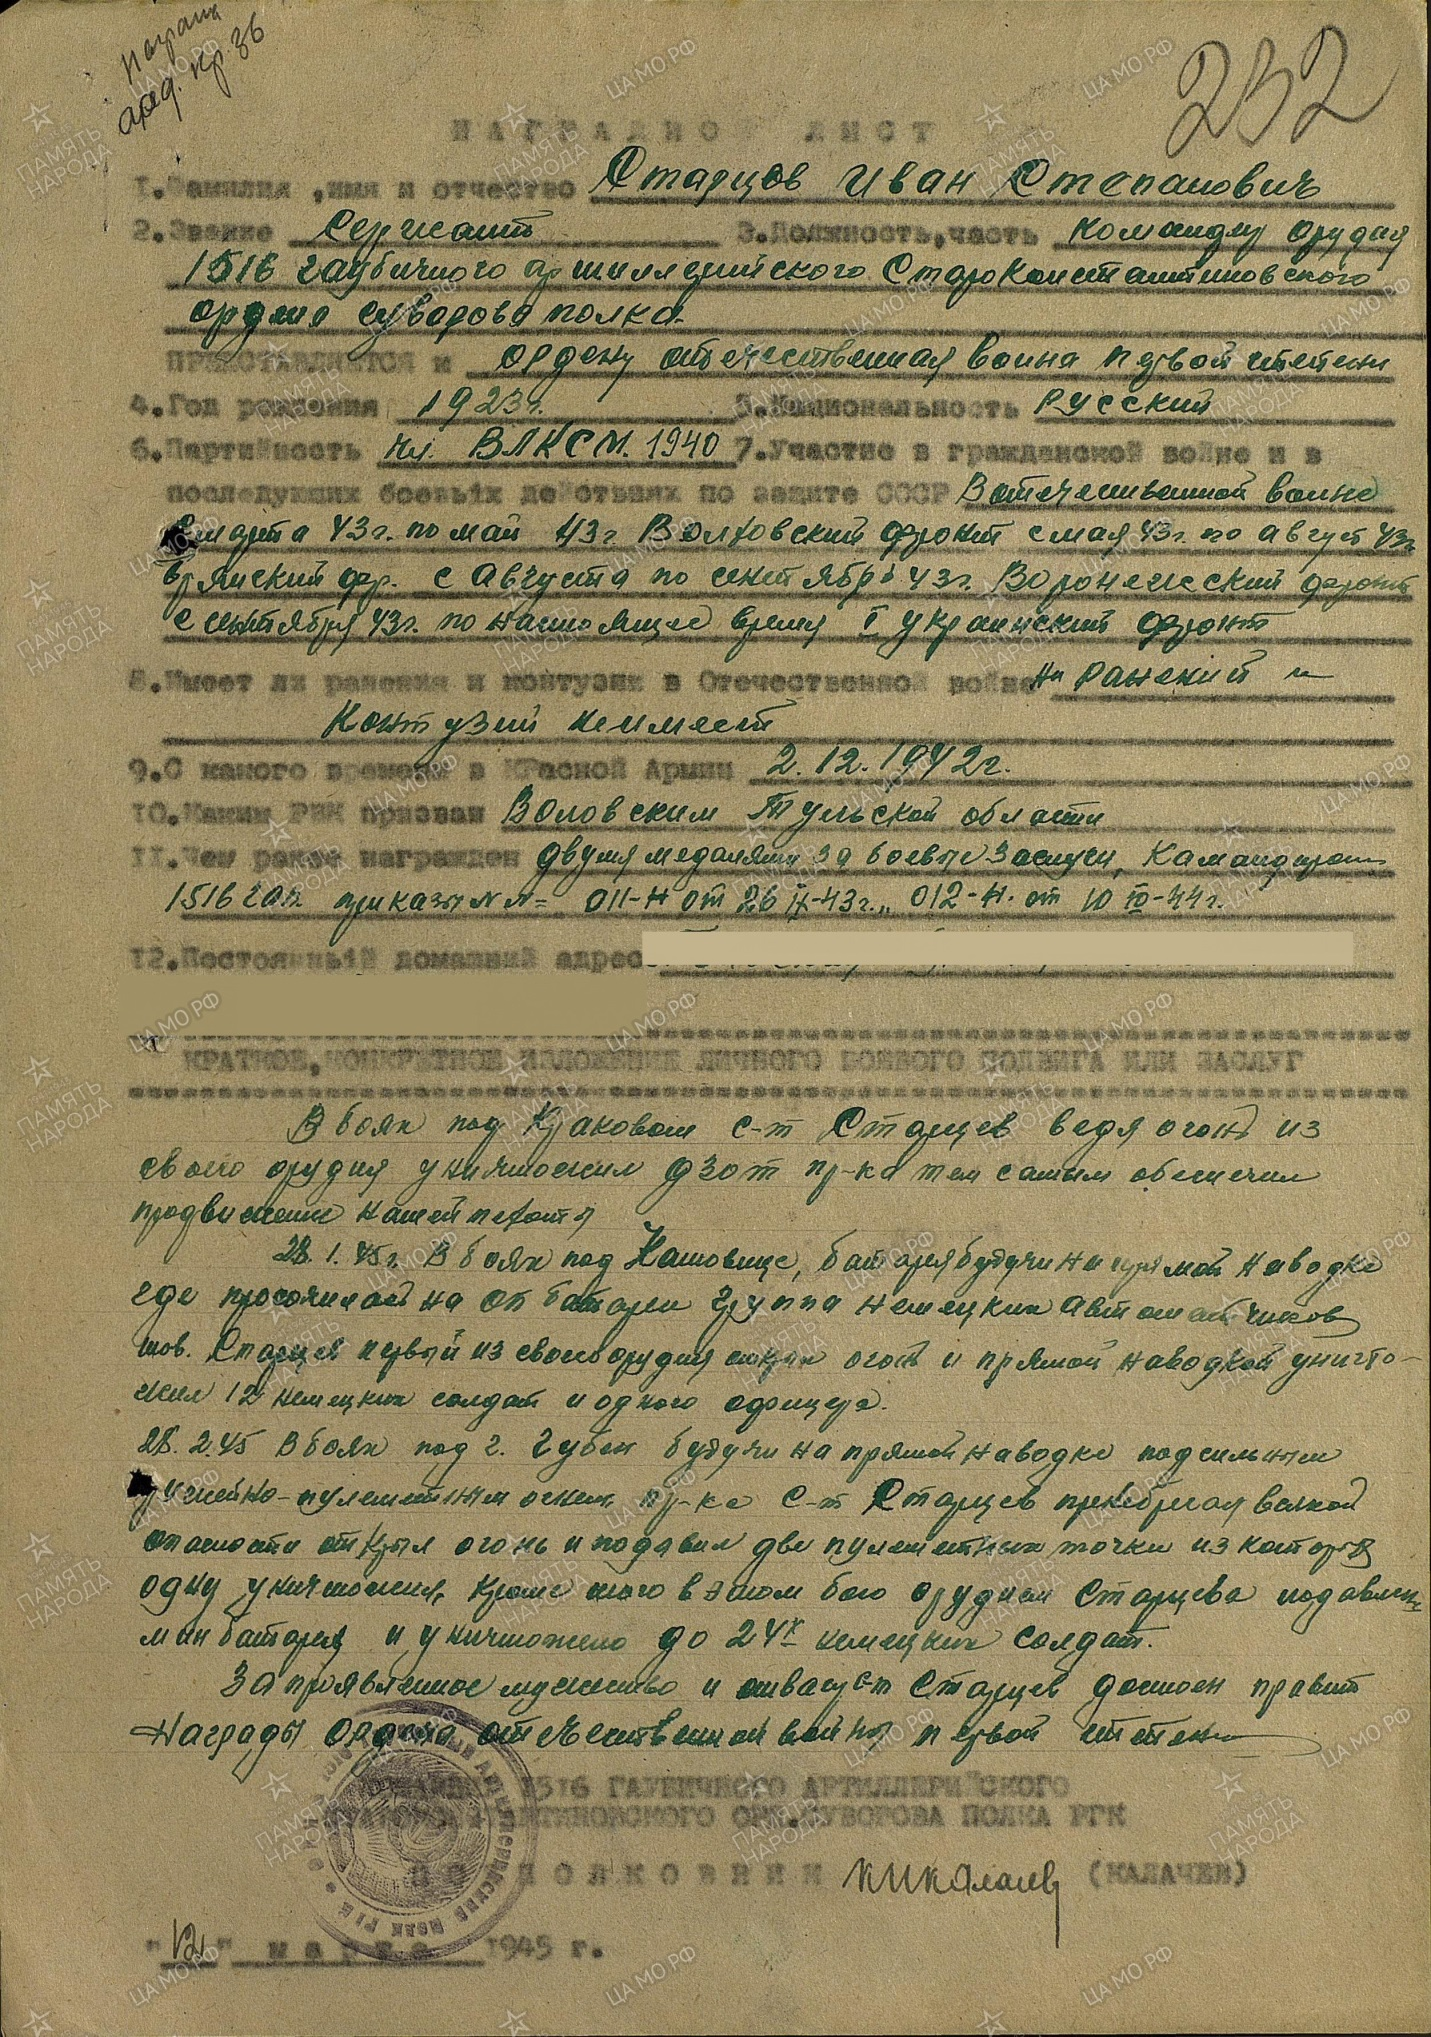 Награжд.
орд. Кр. Зв
232
НАГРАДНОЙ ЛИСТ
1.Фамилия ,имя и отчество Старцов Иван Степанович
2.Звание Сержант 3.Должность,часть Командир орудия
1516 гаубичного артиллерийского Староконстантиновского
ордена Суворова полка.
ПРЕДСТАВЛЯЕТСЯ к ордену отечественная воина первой степени
4.Год рождения 1923г. 5.Национальность Русский
6.Партийность чл. ВЛКСМ. 1940 7.Участие в гражданской войне и в
последующих боевых действиях по защите СССР В отечественной воине
с марта 43г. по май 43г Волховский фронт с мая 43г. по август 43г.
Брянский фр. с Августа по сентябрь 43г. Воронежский фронт
с сентября 43г. по настоящее время I украинский фронт
8.Имеет ли ранения и контузии в Отечественной войне Ни ранений и
Контузий не имеет
9.С какого времени в Красной Армии 2.12.1942г.
10.Каким РВК призван Воловским Тульской области
11.Чем ранее награжден двумя медалями За боевые Заслуги, Командиром
1516 гап. приказы №№= 011-Н от 26 -43г.,, 012-Н. от 10 -44г.
12.Постоянный домашний адрес:
КРАТКОЕ,КОНКРЕТНОЕ ИЗЛОЖЕНИЕ ЛИЧНОГО БОЕВОГО ПОДВИГА ИЛИ ЗАСЛУГ
В боях под Краковом с-т Старцев ведя огонь из
своего орудия уничтожил дзот пр-ка тем самым обеспечил
продвижение нашей пехоты
28.1.45г. В боях под Катовице, батарея будучи на прямой наводке
где просочилась на оп батареи группа немецких автоматчиков
тов. Старцев первый из своего орудия открыл огонь и прямой наводкой уничто-
жил 12 немецких солдат и одного офицера.
28.2.45 В боях под г. Губен будучи на прямой наводке под сильным
ружейно-пулеметным огнем пр-ка С-т Старцев пренебрегая всякой
опасности открыл огонь и подавил две пулеметных точки из которых
одну уничтожил, кроме того в этом бою орудием Старцева подавлена
мин батарея и уничтожено до 24х немецких солдат.
За проявленное мужество и отвагу с-т Старцев достоен правит
Награды Ордена отечественной войны первой степени
1516 ГАУБИЧНОГО АРТИЛЛЕРИЙСКОГО
СТАРОКОНСТАНТИНОВСКОГО ОРД.СУВОРОВА ПОЛКА РГК
ПОДПОЛКОВНИК (КАЛАЧЕВ)
"12" марта 1945 г.
ПАМЯТЬ НАРОДА
ЦА МО РФ